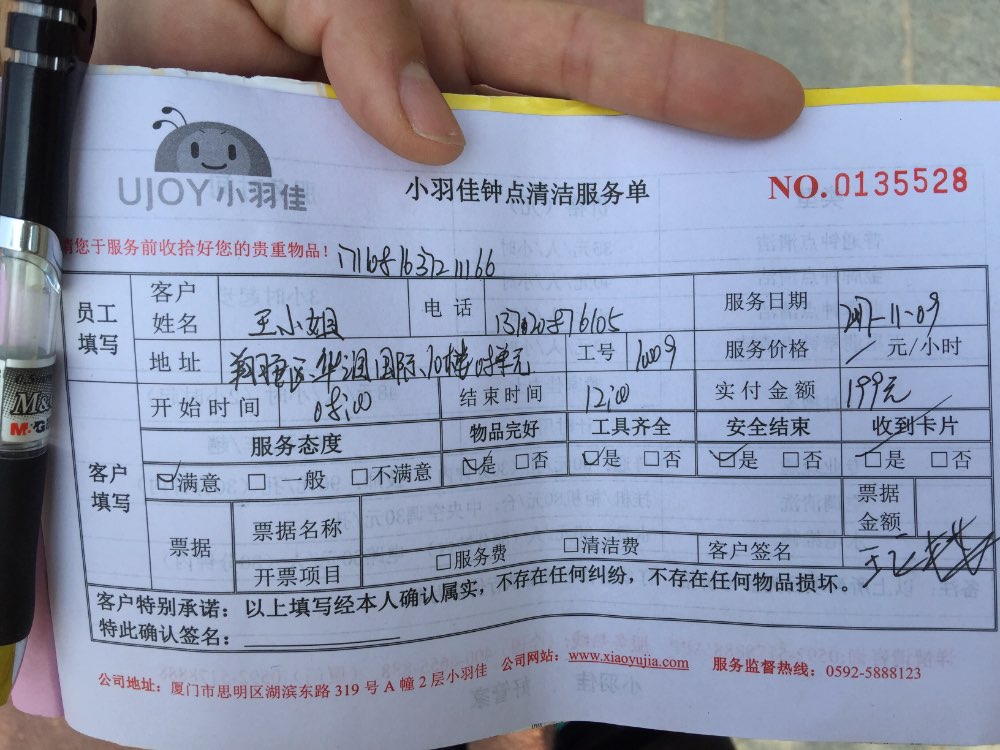 UJOY小羽佳
小羽佳钟点清洁服务单
NO.0135528
您于服务前收拾好您的贵重物品！
员工填写 客户姓名 王小姐 电话 服务日期 2017-11-09
地址 工号 服务价格 / 元/小时
开始时间 08:00 结束时间 12:00 实付金额 199元
客户填写 服务态度 物品完好 工具齐全 安全结束 收到卡片
☑满意 □一般 □不满意 ☑是 □否 ☑是 □否 ☑是 □否 □是 □否
票据 票据名称 票据金额
开票项目 □服务费 □清洁费 客户签名
客户特别承诺：以上填写经本人确认属实，不存在任何纠纷，不存在任何物品损坏。
特此确认签名：
公司地址：厦门市思明区湖滨东路 319 号 A 幢 2 层小羽佳 公司网站：www.xiaoyujia.com 服务监督热线：0592-5888123